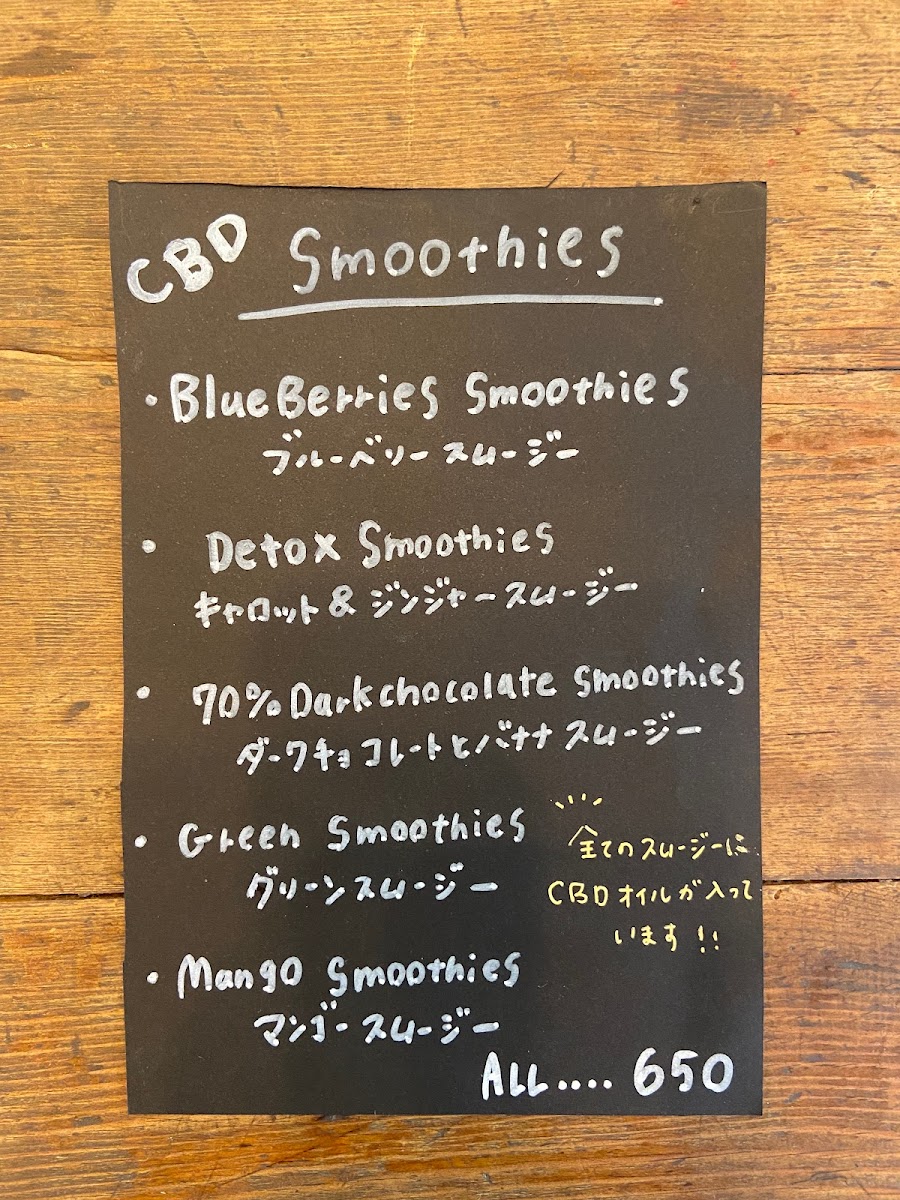 CBD Smoothies
・BlueBerries Smoothies
ブルーベリースムージー
・Detox Smoothies
キャロット&ジンジャースムージー
・70%Darkchocolate smoothies
ダークチョコレートとバナナスムージー
・Green Smoothies
グリーンスムージー
全てのスムージーに
CBDオイルが入って
います!!
・Mango Smoothies
マンゴースムージー
ALL.... 650